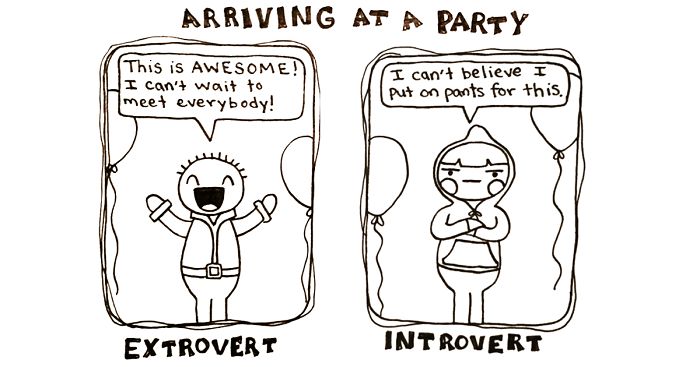 ARRIVING AT A PARTY
This is AWESOME!
I can't wait to
meet everybody!
I can't believe I
put on pants for this.
EXTROVERT
INTROVERT